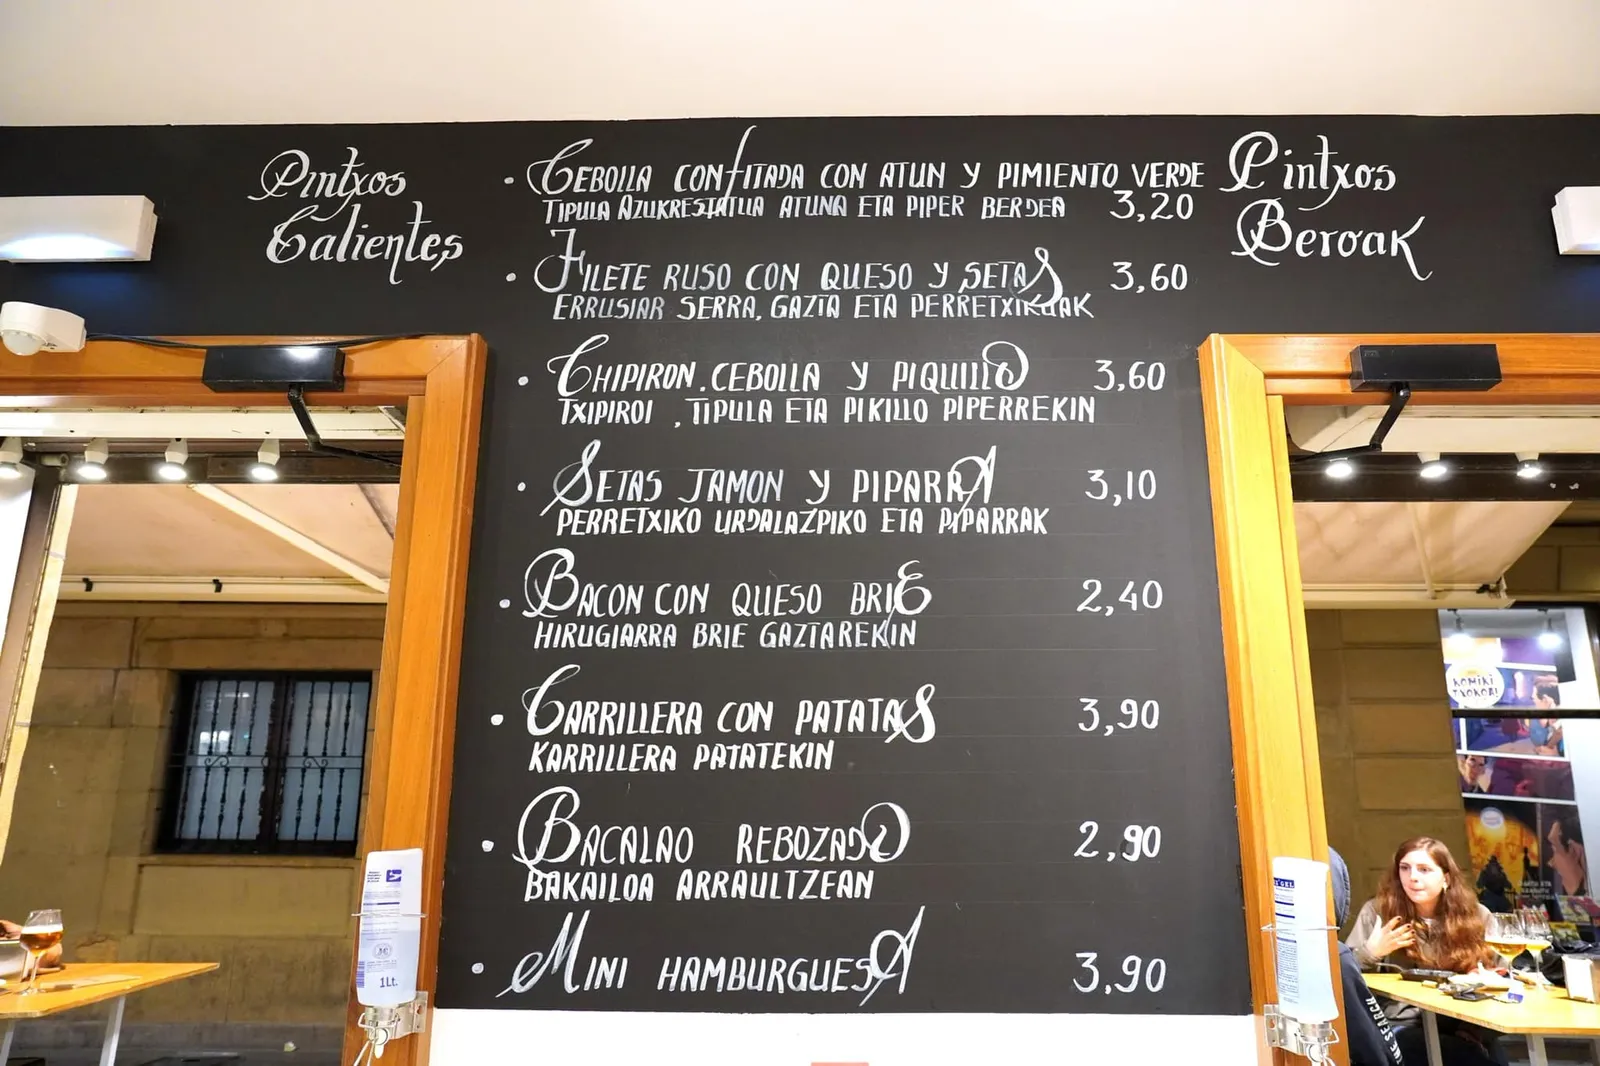 Pintxos
Calientes
Pintxos
Beroak
• CEBOLLA CONFITADA CON ATUN Y PIMIENTO VERDE
TIPULA AZUKRESTATUA ATUNA ETA PIPER BERDEA 3,20
• FILETE RUSO CON QUESO Y SETAS 3,60
ERRUSIAR SERRA, GAZTA ETA PERRETXIKUAK
• CHIPIRON.CEBOLLA Y PIQUILLO 3,60
TXIPIROI , TIPULA ETA PIKILLO PIPERREKIN
• SETAS JAMON Y PIPARRA 3,10
PERRETXIKO URDALAZPIKO ETA PIPARRAK
• BACON CON QUESO BRIE 2,40
HIRUGIARRA BRIE GAZTAREKIN
• CARRILLERA CON PATATAS 3,90
KARRILLERA PATATEKIN
• BACALAO REBOZADO 2,90
BAKAILOA ARRAULTZEAN
• MINI HAMBURGUESA 3,90
1Lt.
KOMIKI
TXOKOA!